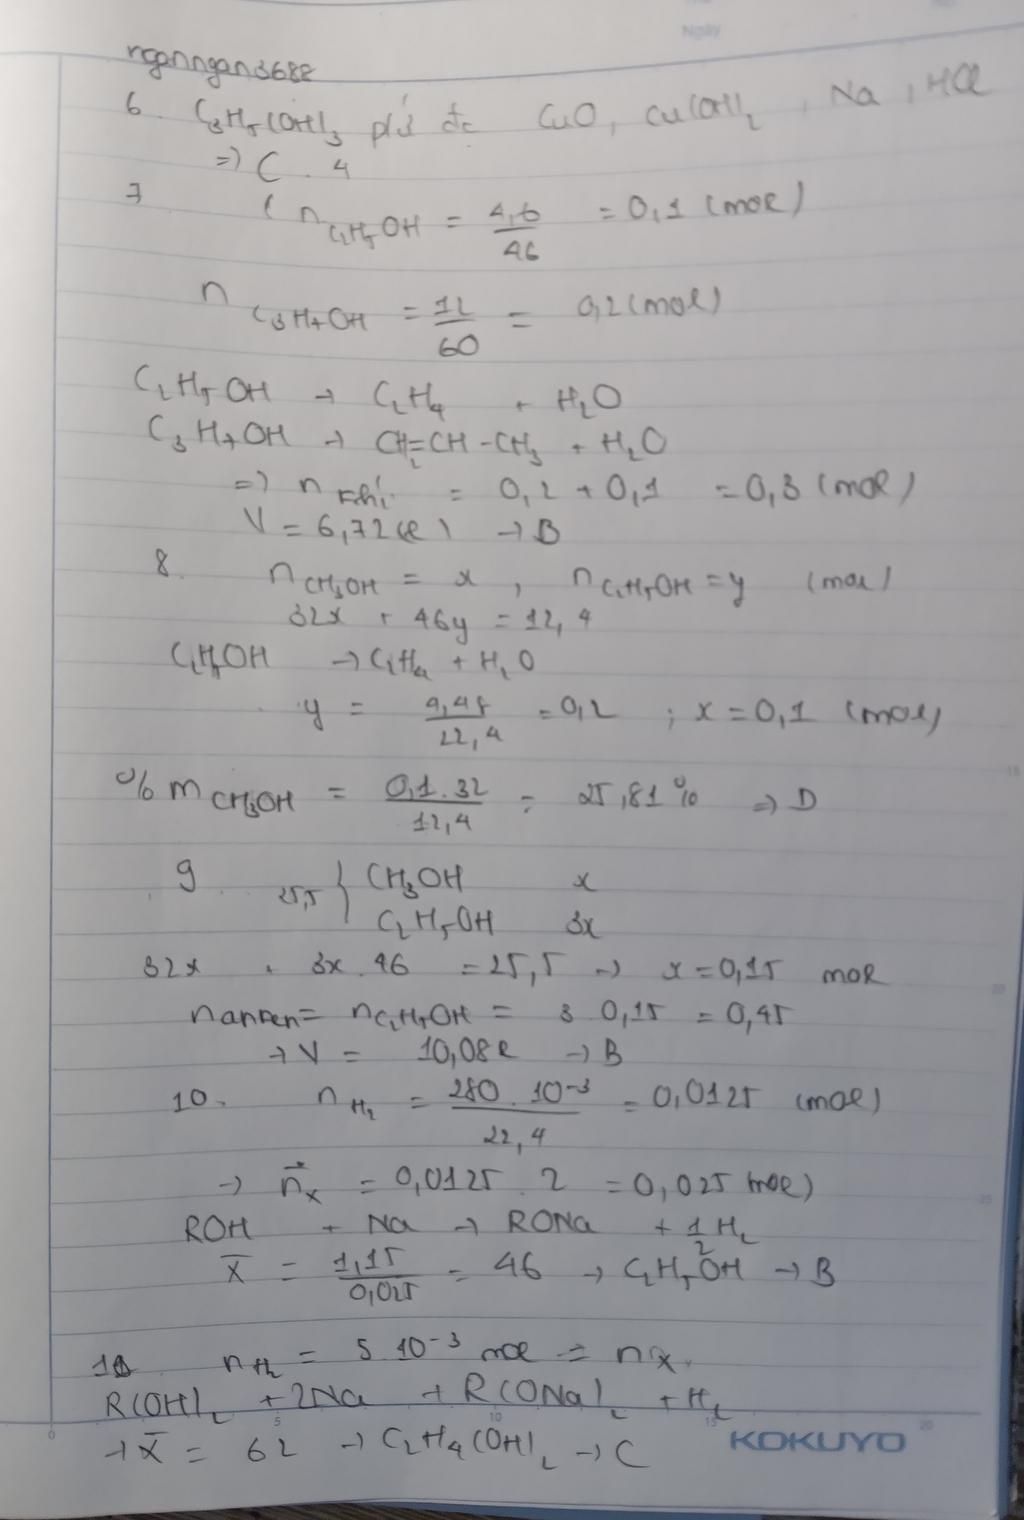 Ngày
nganngan3688
6. C3H5(OH)3 pứ đc CuO, Cu(OH)2, Na, HCl
=> C. 4
7 ( nC2H5OH = 4,6/46 = 0,1 (mol)
nC3H7OH = 12/60 = 0,2 (mol)
C2H5OH → C2H4 + H2O
C3H7OH → CH2=CH-CH3 + H2O
=> n khí = 0,2 + 0,1 = 0,3 (mol)
V = 6,72 (l) → B
8. nCH3OH = x, nC2H5OH = y (mol)
32x + 46y = 12,4
C2H5OH → C2H4 + H2O
y = 4,48/22,4 = 0,2 ; x = 0,1 (mol)
% mCH3OH = 0,1.32/12,4 = 25,81% => D
9. 25,5 } CH3OH x
C2H5OH 3x
32x + 3x.46 = 25,5 → x = 0,15 mol
nanken = nC2H5OH = 3.0,15 = 0,45
→ V = 10,08l → B
10. nH2 = 280.10-3/22,4 = 0,0125 (mol)
→ nX = 0,0125.2 = 0,025 mol)
ROH + Na → RONa + 1/2 H2
X = 1,15/0,025 = 46 → C2H5OH → B
11 nH2 = 5.10-3 mol = nX
R(OH)2 + 2Na → R(ONa)2 + H2
→ X = 62 → C2H4(OH)2 → C
KOKUYO